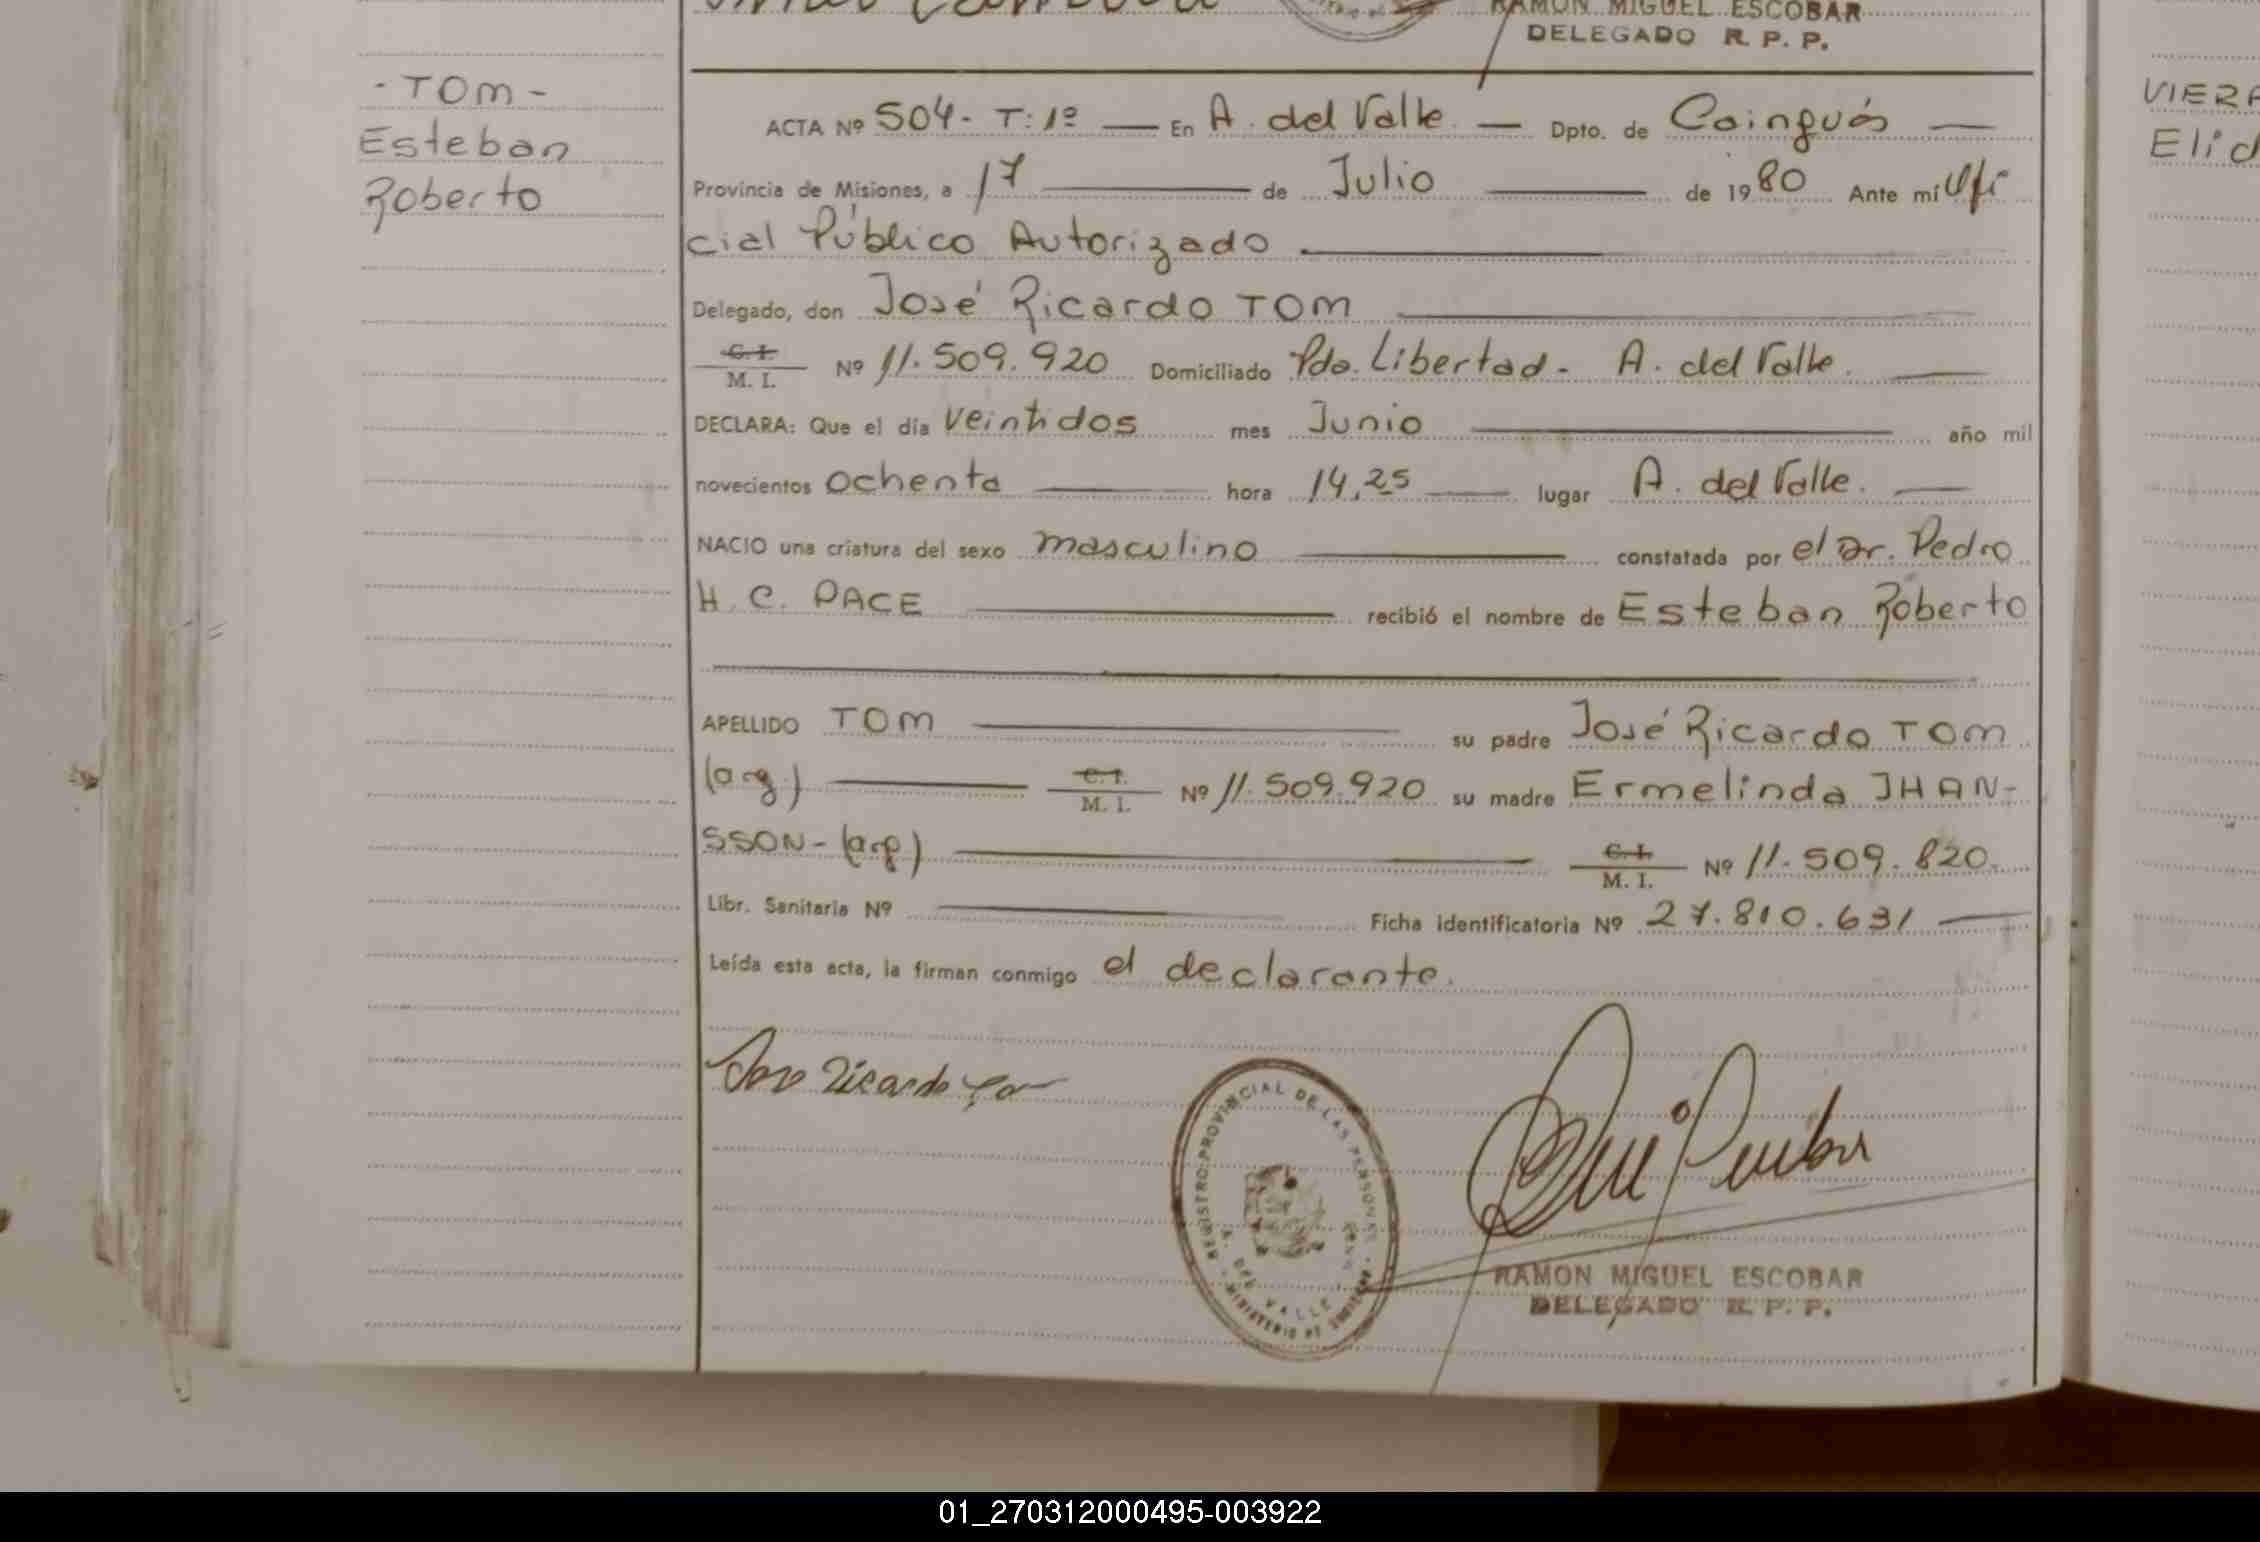 RAMON MIGUEL ESCOBAR
DELEGADO R. P. P.
- TOM -
Esteban
Roberto
ACTA Nº 504- T: 1º — En A. del Valle — Dpto. de Cainguás —
Provincia de Misiones, a 17 — de Julio — de 1980 Ante mí Ofi
cial Público Autorizado —
Delegado, don José Ricardo TOM —
C. I.
M. I. Nº 11.509.920 Domiciliado Pdo. Libertad - A. del Valle. —
DECLARA: Que el día veintidos mes Junio — año mil
novecientos ochenta — hora 14,25 — lugar A. del Valle. —
NACIO una criatura del sexo masculino — constatada por el Dr. Pedro
H. C. PACE — recibió el nombre de Esteban Roberto
APELLIDO TOM — su padre José Ricardo TOM
(arg.) — C. I. M. I. Nº 11.509.920 su madre Ermelinda JHAN-
SSON - (arg) — C. I. M. I. Nº 11.509.820.
Libr. Sanitaria Nº — Ficha identificatoria Nº 27.810.631 —
Leída esta acta, la firman conmigo el declarante.
Jose Ricardo Tom
REGISTRO PROVINCIAL DE LAS PERSONAS
A. DEL VALLE
MINISTERIO DE
RAMON MIGUEL ESCOBAR
DELEGADO R. P. P.
VIERA
Elid
01_270312000495-003922